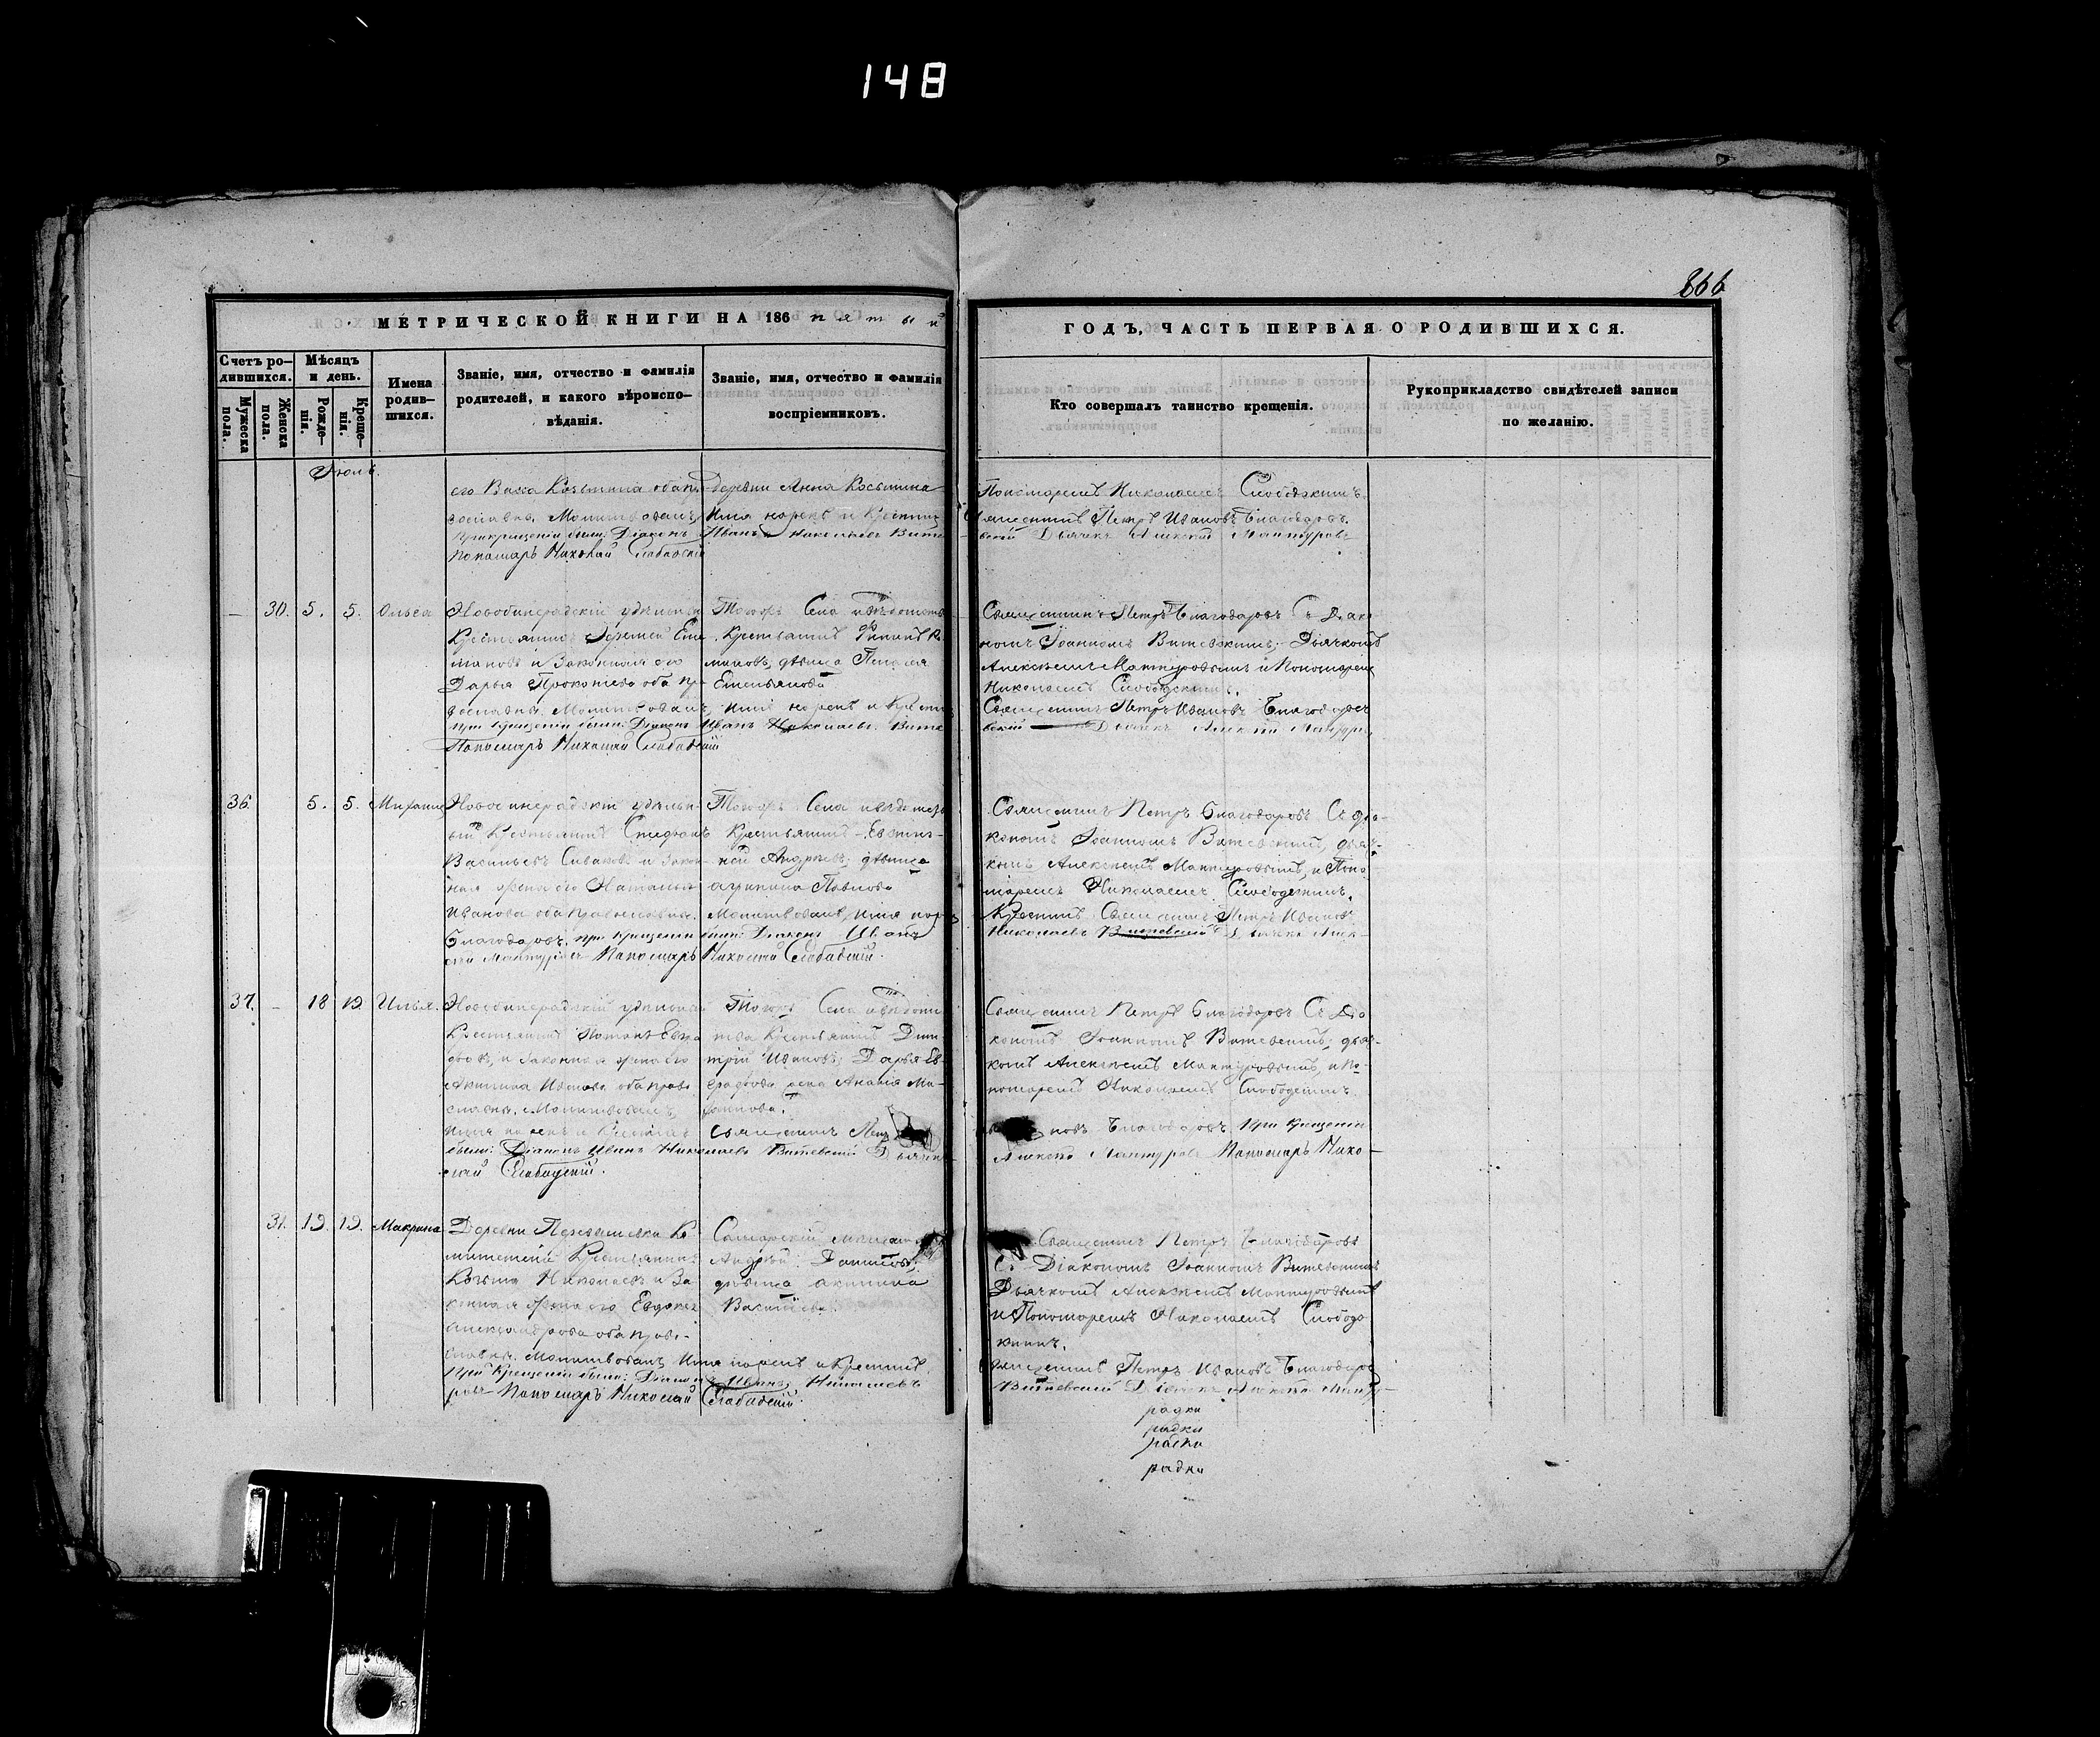 148
866
МЕТРИЧЕСКОЙ КНИГИ НА 186 пятый
ГОДЪ, ЧАСТЬ ПЕРВАЯ О РОДИВШИХСЯ.
Счетъ ро-
дившихся.
Мужеска
пола.
Женска
пола.
Мѣсяцъ
и день.
Рожде-
нія.
Креще-
нія.
Имена
родив-
шихся.
Званіе, имя, отчество и фамилія
родителей, и какого вѣроиспо-
вѣданія.
Званіе, имя, отчество и фамилія
воспріемниковъ.
Кто совершалъ таинство крещенія.
Рукоприкладство свидѣтелей записи
по желанію.
Іюль.
его Васса Козьмина оба пра-
вославн. Молитвовалъ,
При крещеніи были: Діаконъ
Пономарь Николай Слободскій
деревни Анна Косьмина
Имя нарекъ и Крестилъ
Иванъ Николаевъ Вите
Пономаремъ Николаемъ Слободскимъ.
Священникъ Петръ Ивановъ Благодаровъ.
вскій Дьячекъ Алексей Мантуровъ
30. 5. 5. Ольга
Крестьянинъ
и Законная его
Дарья Прокопьева оба пра
вославн. Молитвовалъ,
при крещеніи были: Діаконъ
Пономарь Николай Слободскій
Тогожъ Села
Крестьянинъ Филипъ
девица Пелагея
Емельянова
имя нарекъ и Крестилъ
Иванъ Николаевъ Вите
Священникъ Петръ Благодаровъ Съ Діако
номъ Іоанномъ Витевскимъ, Дьячкомъ
Алексеемъ Мантуровымъ и Пономаремъ
Николаемъ Слободскимъ.
Священникъ Петръ Ивановъ Благодаровъ
вскій Дьячекъ Алексей Мантуро
36. 5. 5. Михаилъ
Крестьянинъ Стефанъ
Васильевъ Сиваковъ и закон-
ная жена его Наталья
Иванова оба православны.
Благодаровъ. при крещеніи
сей Мантуровъ Пономарь
Тогожъ Села
Крестьянинъ Евстиг-
ней Андреевъ; девица
агрипина Павлова
Молитвовалъ, имя нарекъ
были: Діаконъ Иванъ
Николай Слободскій.
Священникъ Петръ Благодаровъ Съ діа-
кономъ Іоанномъ Витевскимъ, дьяч-
комъ Алексеемъ Мантуровымъ, и Поно
маремъ Николаемъ Слободскимъ.
Крестилъ Священникъ Петръ Ивановъ
Николаевъ Витевскій Дьячекъ Алек-
37. - 18 19 Илья.
Крестьянинъ Потапъ Евгра
фовъ, и законная жена его
Акилина Ивanова оба право
славн. Молитвовалъ,
имя нарекъ и Крестилъ
были: Діаконъ Иванъ Нико
лай Слободскій.
Тогожъ Села
Крестьянинъ Дми-
трій Ивановъ; Дарья Ев-
графова жена Ананія Ма-
Священникъ Петръ
лаевъ Витевскій Дьячек
Священникъ Петръ Благодаровъ Съ Діа
кономъ Іоанномъ Витевскимъ, дьяч-
комъ Алексеемъ Мантуровымъ, и По-
номаремъ Николаемъ Слободскимъ.
новъ Благодаровъ При крещеніи
Алексей Мантуровъ Пономарь Нико-
31. 19. 19. Макрина
Деревни
Крестьянинъ
Козьма Николаевъ и За
конная жена его Евдокея
Александрова оба право-
славн. Молитвовалъ
При крещеніи были: Діаконъ
ровъ Пономарь Николай
Самарскій мещанинъ
Андрей Даниловъ;
девица акилина
Васильева.
Имя нарекъ и Крестилъ
Иванъ Николаевъ
Слободскій.
Священникъ Петръ Благодаровъ
Съ Діакономъ Іоанномъ Витевскимъ
Дьячкомъ Алексеемъ Мантуровымъ
и Пономаремъ Николаемъ Слободс
кимъ.
Священникъ Петръ Ивановъ Благодаровъ
Витевскій Дьячекъ Алексей Манту-
радки
радки
радки
радки